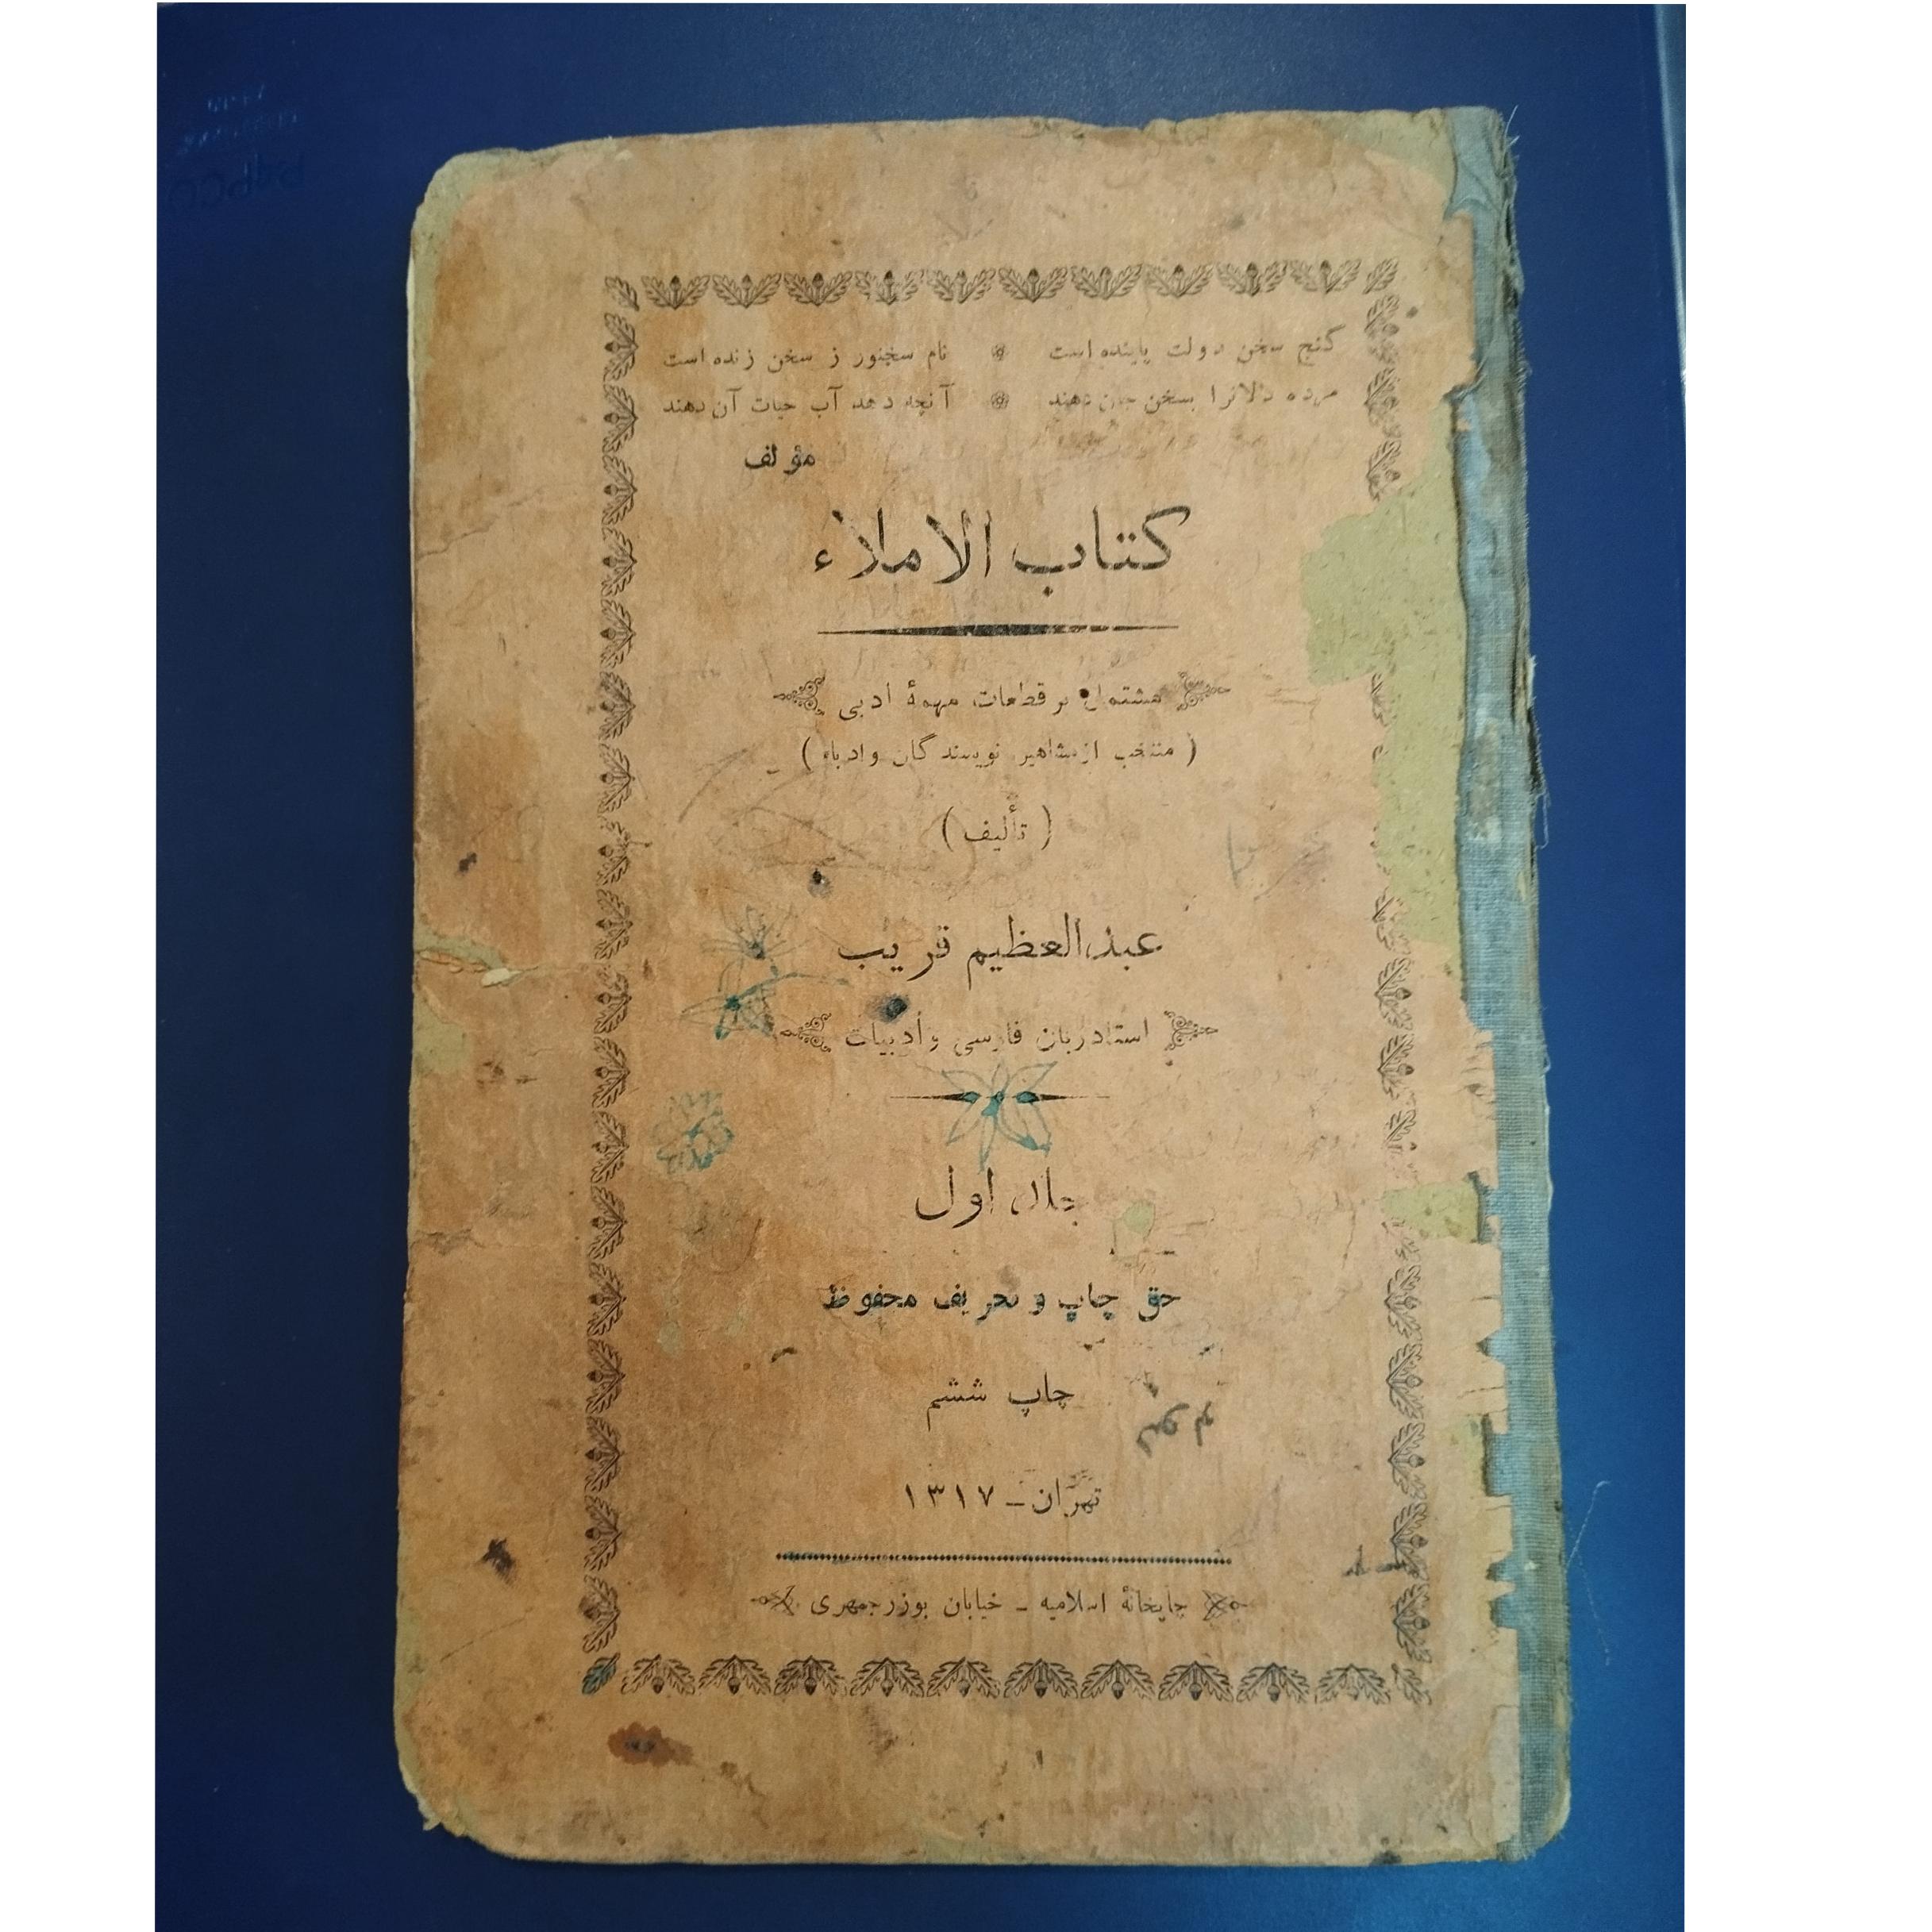 گنج سخن دولت پاینده است نام سخنور ز سخن زنده است
مرده دلانرا بسخن جان دهند آنچه دهد آب حیات آن دهند
مؤلف
کتاب الاملاء
مشتمل بر قطعات مهمهٔ ادبی
( منتخب از مشاهیر نویسندگان و ادباء )
( تألیف )
عبدالعظیم قریب
استاد زبان فارسی و ادبیات
جلد اول
حق چاپ و تحریف محفوظ
چاپ ششم
تهران ـ ۱۳۱۷
چاپخانهٔ اسلامیه ـ خیابان بوذرجمهری